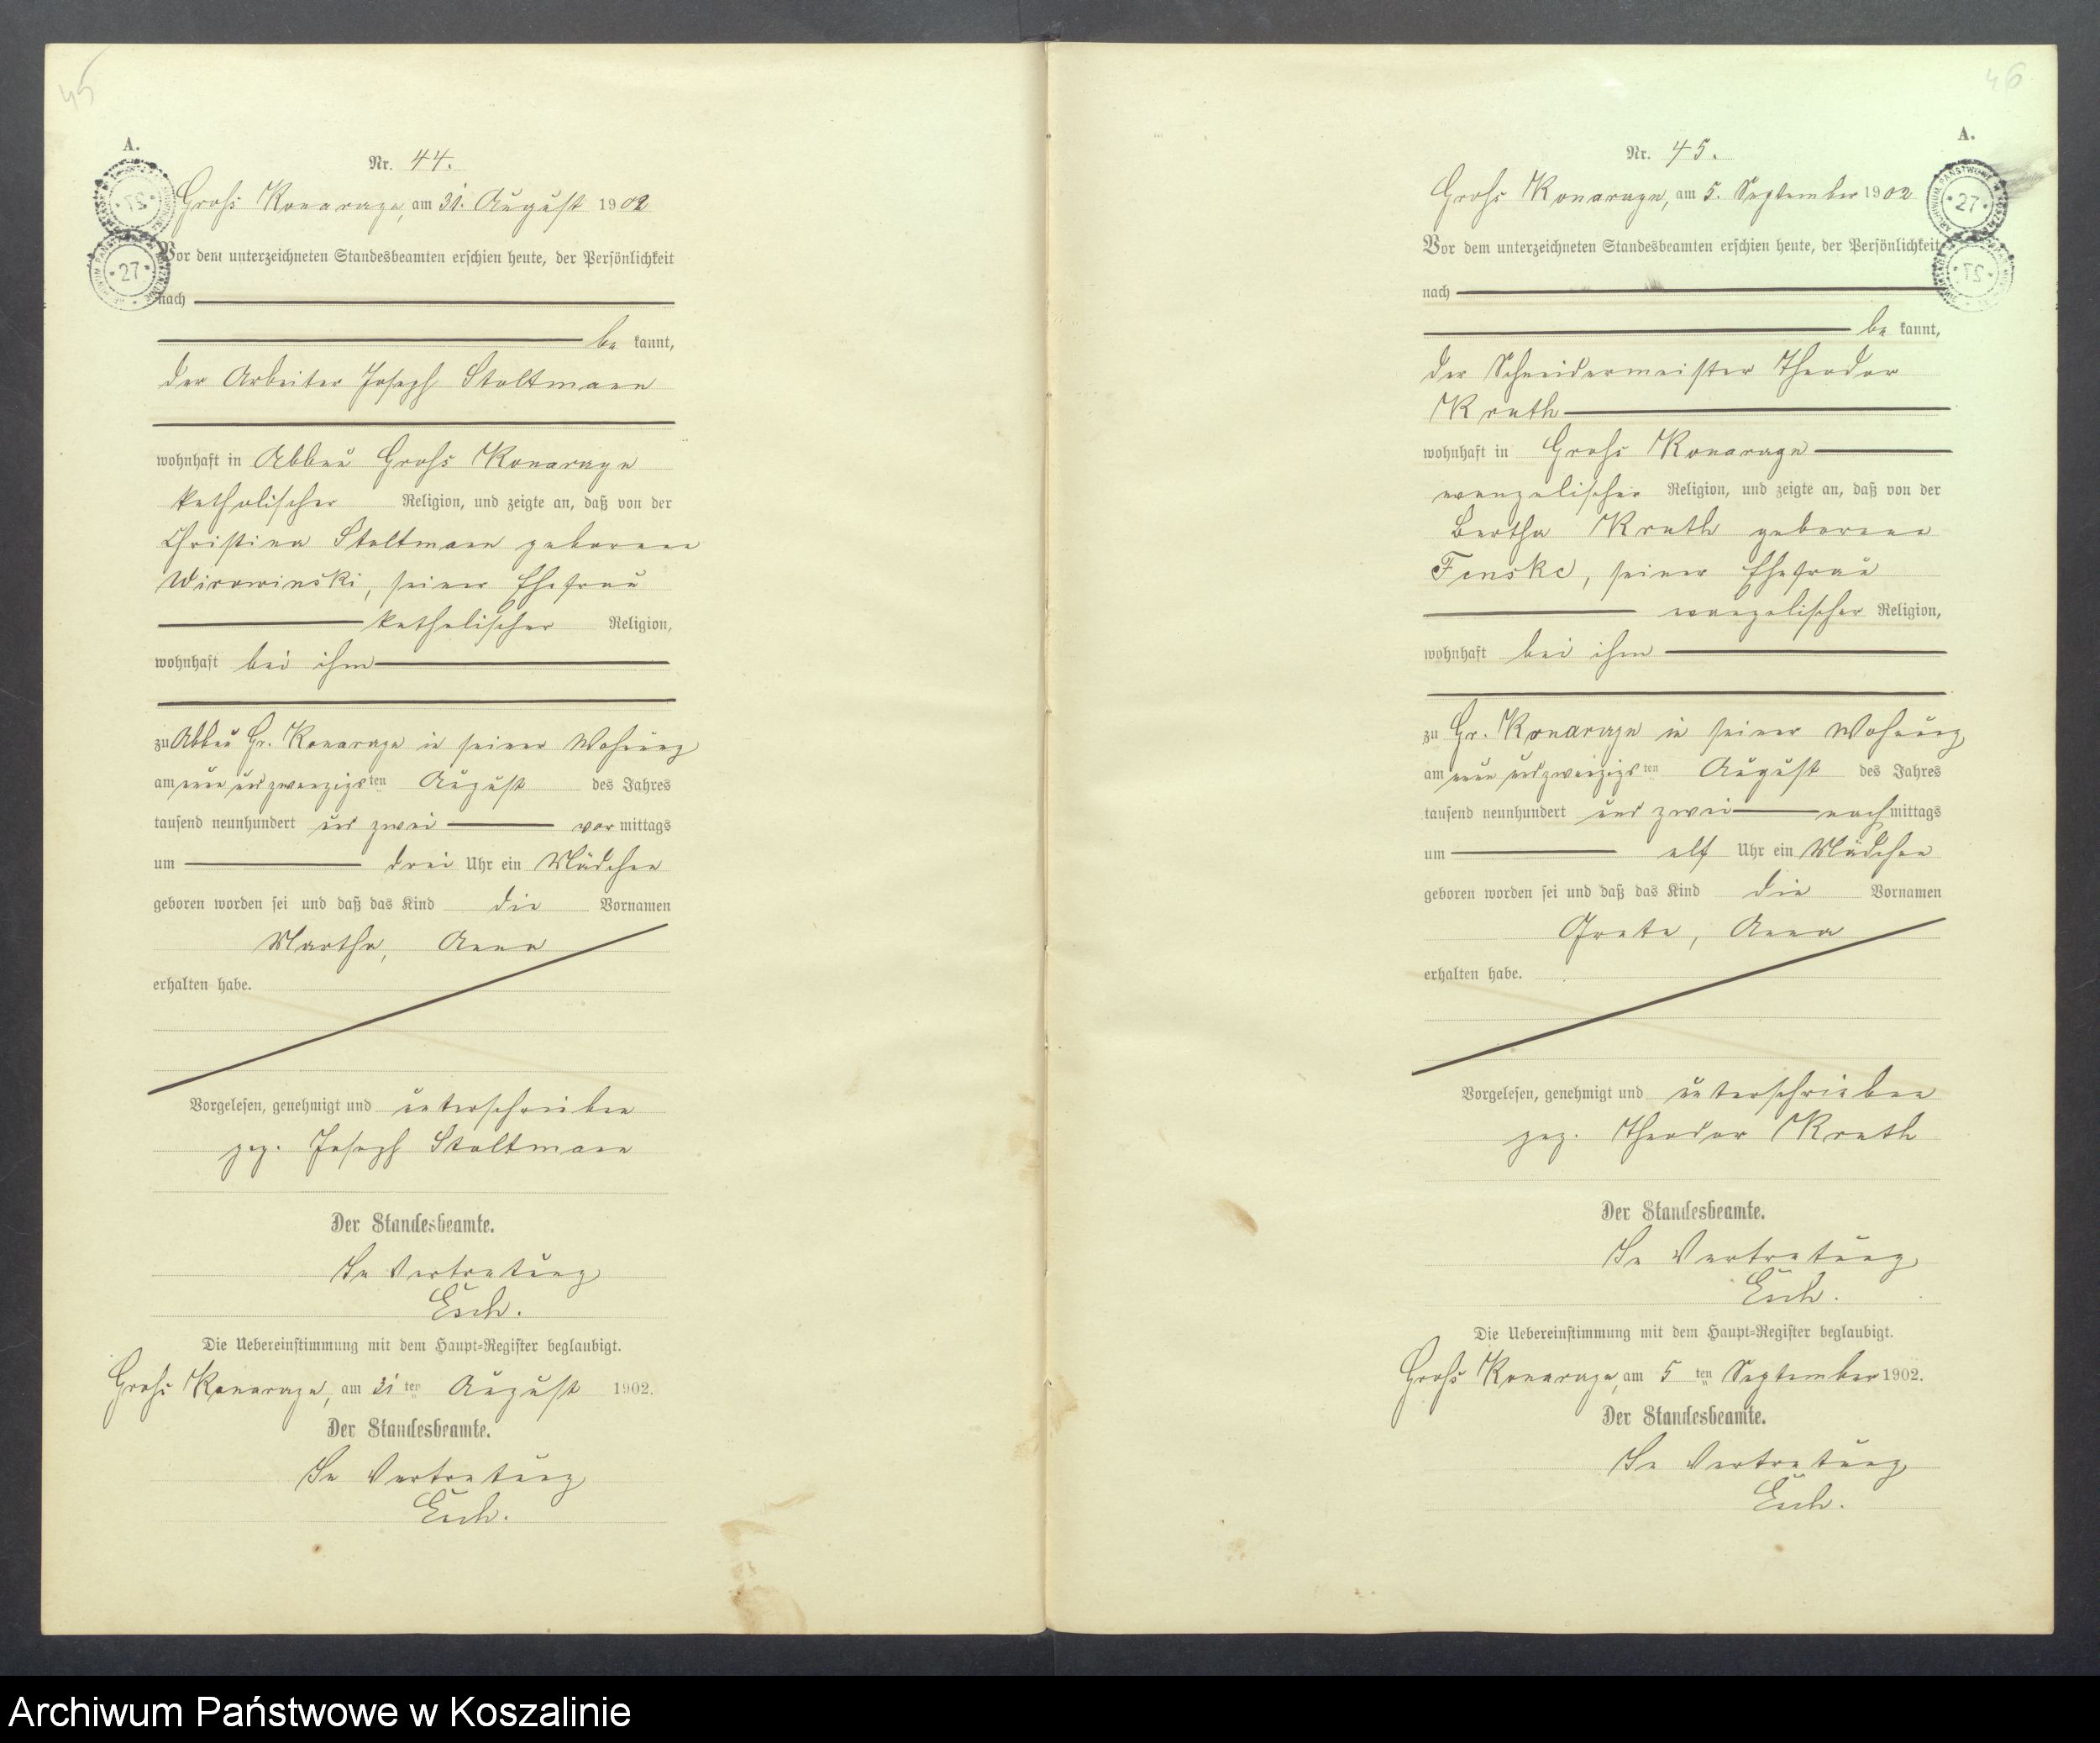 45
A.
Nr. 44.
Groß Konarczyn, am 31. August 1902
Vor dem unterzeichneten Standesbeamten erschien heute, der Persönlichkeit
nach
be kannt,
der Arbeiter Joseph Stoltmann
wohnhaft in Abbau Groß Konarczyn
katholischer Religion, und zeigte an, daß von der
Christina Stoltmann geborene
Wirowinski, seiner Ehefrau
katholischer Religion,
wohnhaft bei ihm
zu Abbau Gr. Konarczyn in seiner Wohnung
am neun und zwanzigsten August des Jahres
tausend neunhundert und zwei vor mittags
um drei Uhr ein Mädchen
geboren worden sei und daß das Kind die Vornamen
Martha, Anna
erhalten habe.
Vorgelesen, genehmigt und unterschrieben
gez. Joseph Stoltmann
Der Standesbeamte.
In Vertretung
Esch.
Die Uebereinstimmung mit dem Haupt-Register beglaubigt.
Groß Konarczyn, am 31 ten August 1902.
Der Standesbeamte.
In Vertretung
Esch.
46
A.
Nr. 45.
Groß Konarczyn, am 5. September 1902
Vor dem unterzeichneten Standesbeamten erschien heute, der Persönlichkeit
nach
be kannt,
der Schneidermeister Theodor
Kruth
wohnhaft in Groß Konarczyn
evangelischer Religion, und zeigte an, daß von der
Bertha Kruth geborene
Fenske, seiner Ehefrau
evangelischer Religion,
wohnhaft bei ihm
zu Gr. Konarczyn in seiner Wohnung
am neun und zwanzigsten August des Jahres
tausend neunhundert und zwei nach mittags
um elf Uhr ein Mädchen
geboren worden sei und daß das Kind die Vornamen
Grete, Anna
erhalten habe.
Vorgelesen, genehmigt und unterschrieben
gez. Theodor Kruth
Der Standesbeamte.
In Vertretung
Esch.
Die Uebereinstimmung mit dem Haupt-Register beglaubigt.
Groß Konarczyn, am 5 ten September 1902.
Der Standesbeamte.
In Vertretung
Esch.
Archiwum Państwowe w Koszalinie